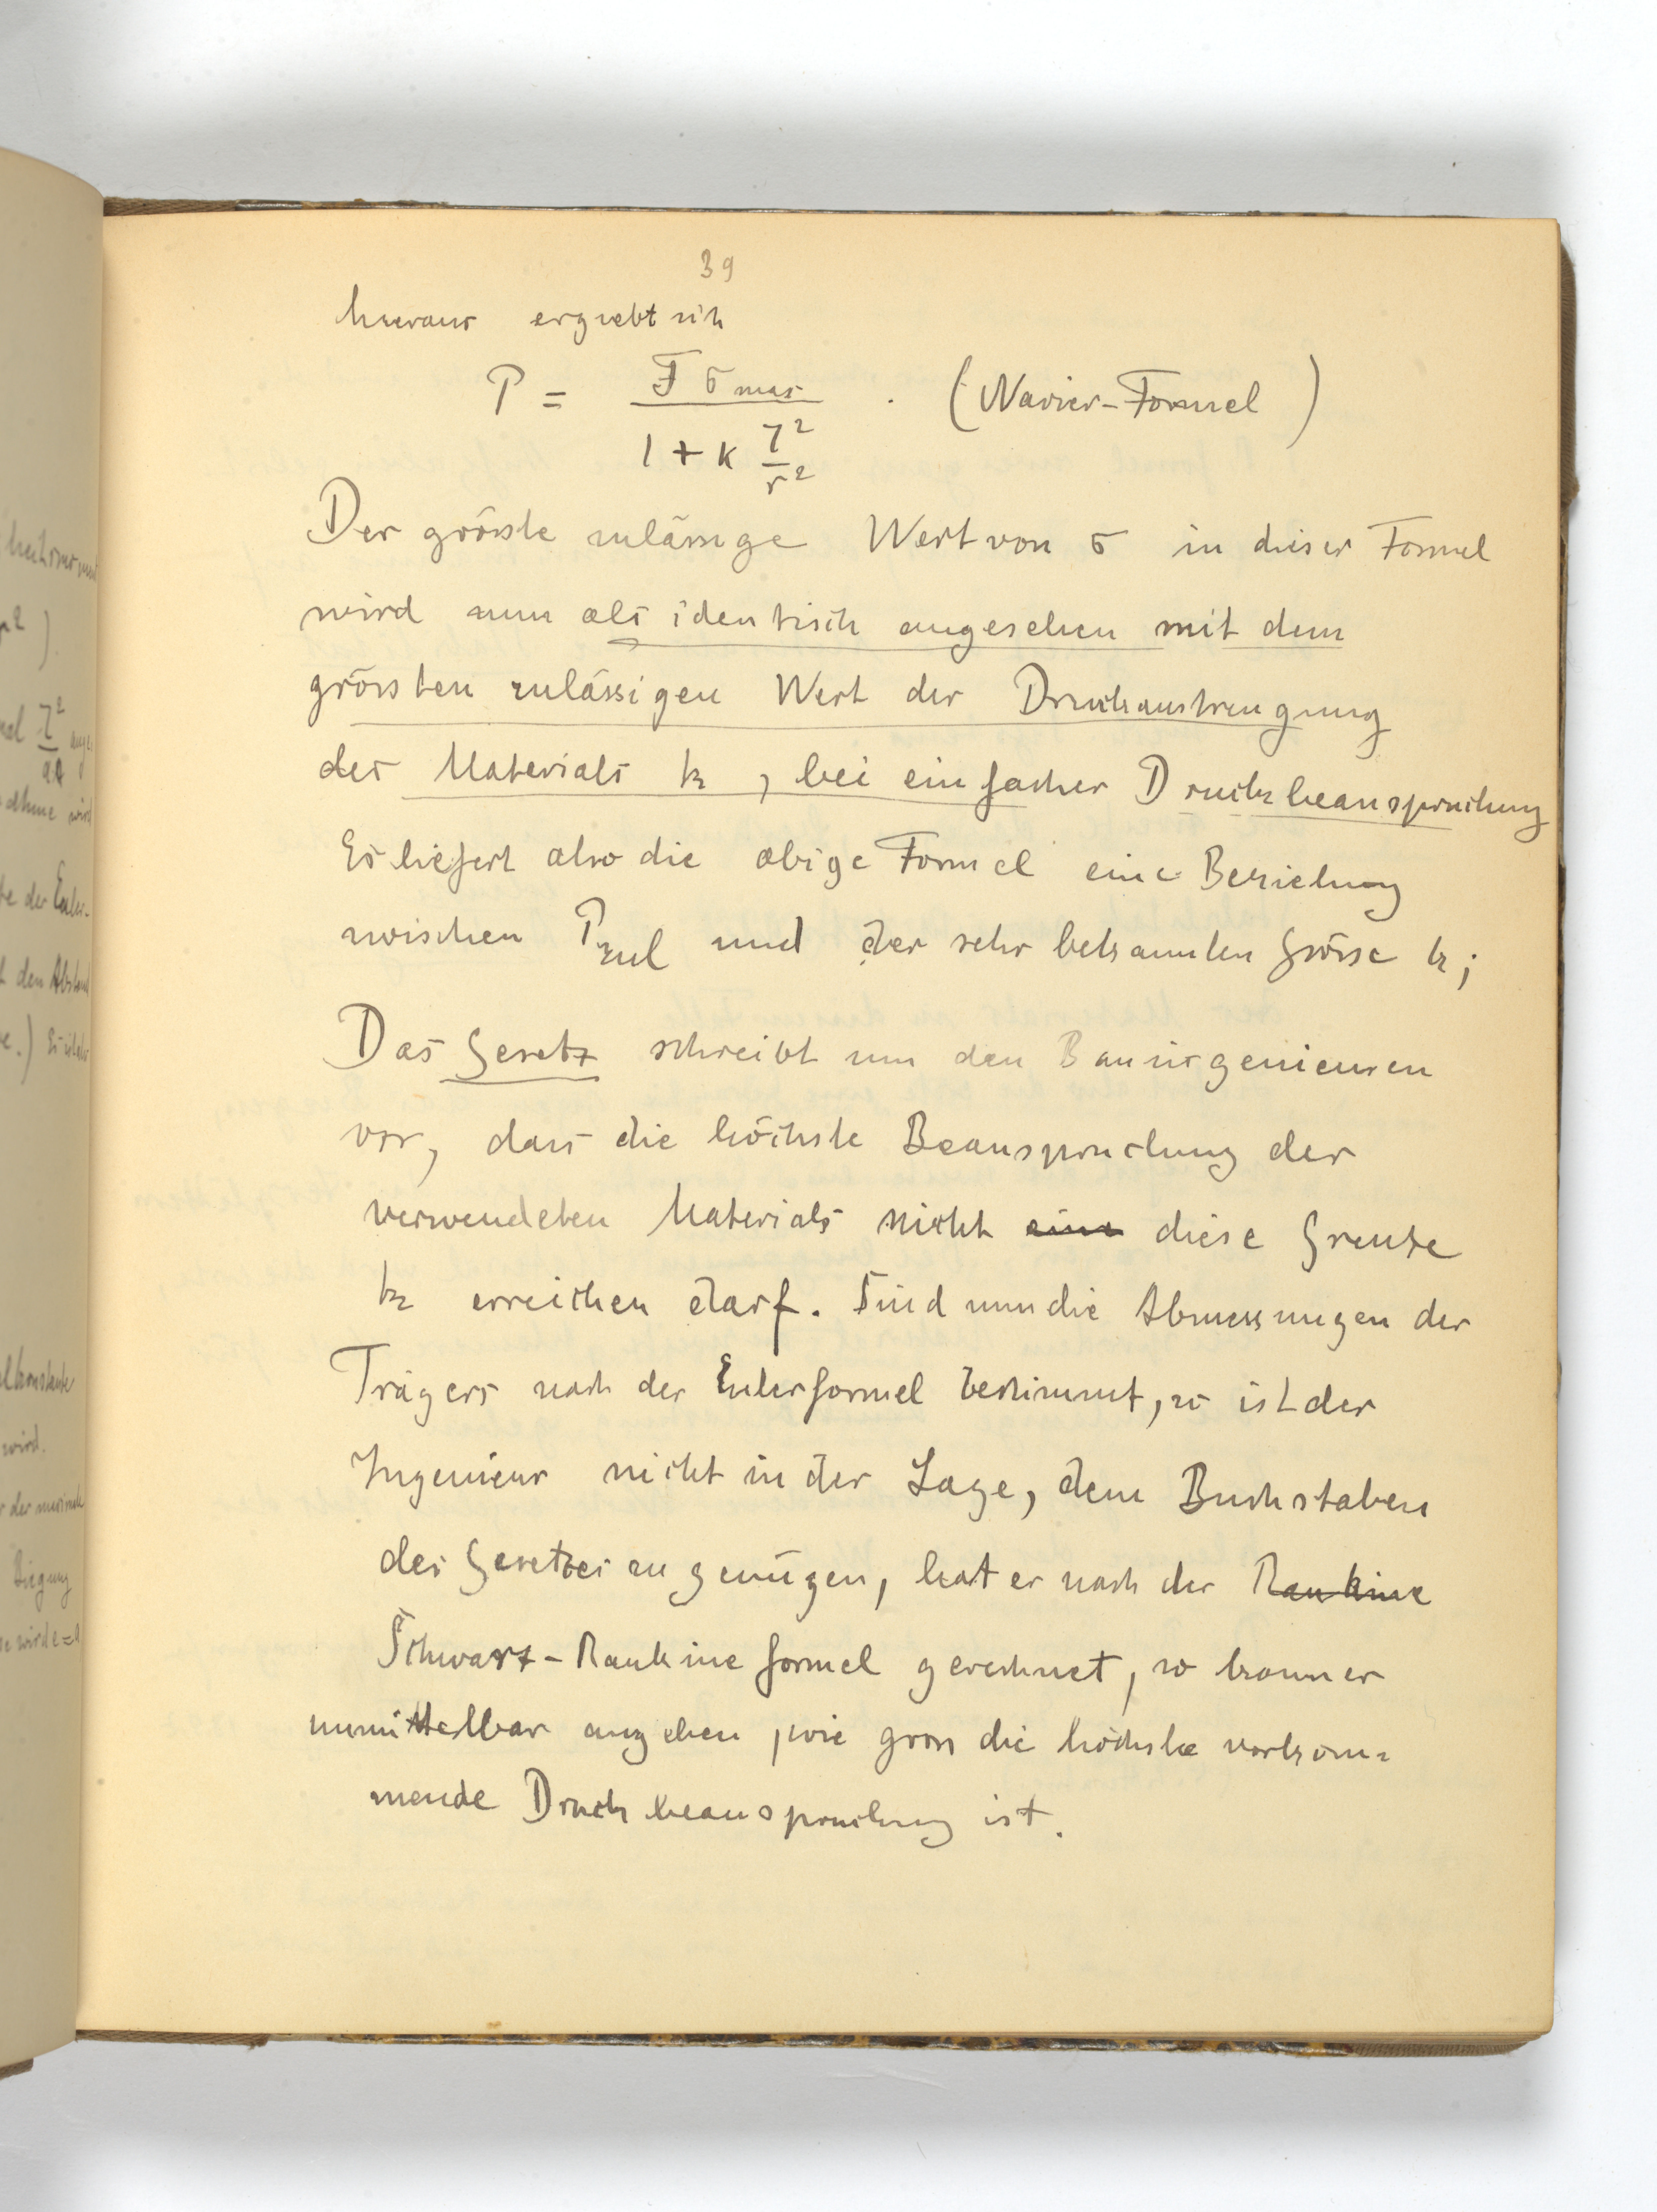 39
hieraus ergiebt sich
P = F σ max / 1 + k l² / r² . (Navier-Formel)
Der grösste zulässige Wert von σ in dieser Formel
wird nun als identisch angesehen mit dem
grössten zulässigen Wert der Druckanstrengung
des Materials k, bei einfacher Druckbeanspruchung
Es liefert also die obige Formel eine Beziehung
zwischen P zul und der sehr bekannten Grösse k;
Das Gesetz schreibt nun den Bauingenieuren
vor, dass die höchste Beanspruchung des
verwendeten Materials nicht eine diese Grenze
k erreichen darf. Sind nun die Abmessungen des
Trägers nach der Eulerformel bestimmt, so ist der
Ingenieur nicht in der Lage, dem Buchstaben
des Gesetzes zu genügen, hat er nach der Rankine
Schwarz-Rankine formel gerechnet, so kann er
unmittelbar angeben, wie gross die höchste vorkom=
mende Druckbeanspruchung ist.
l²
wird
der Euler-
den Abstand
wird.
Biegung